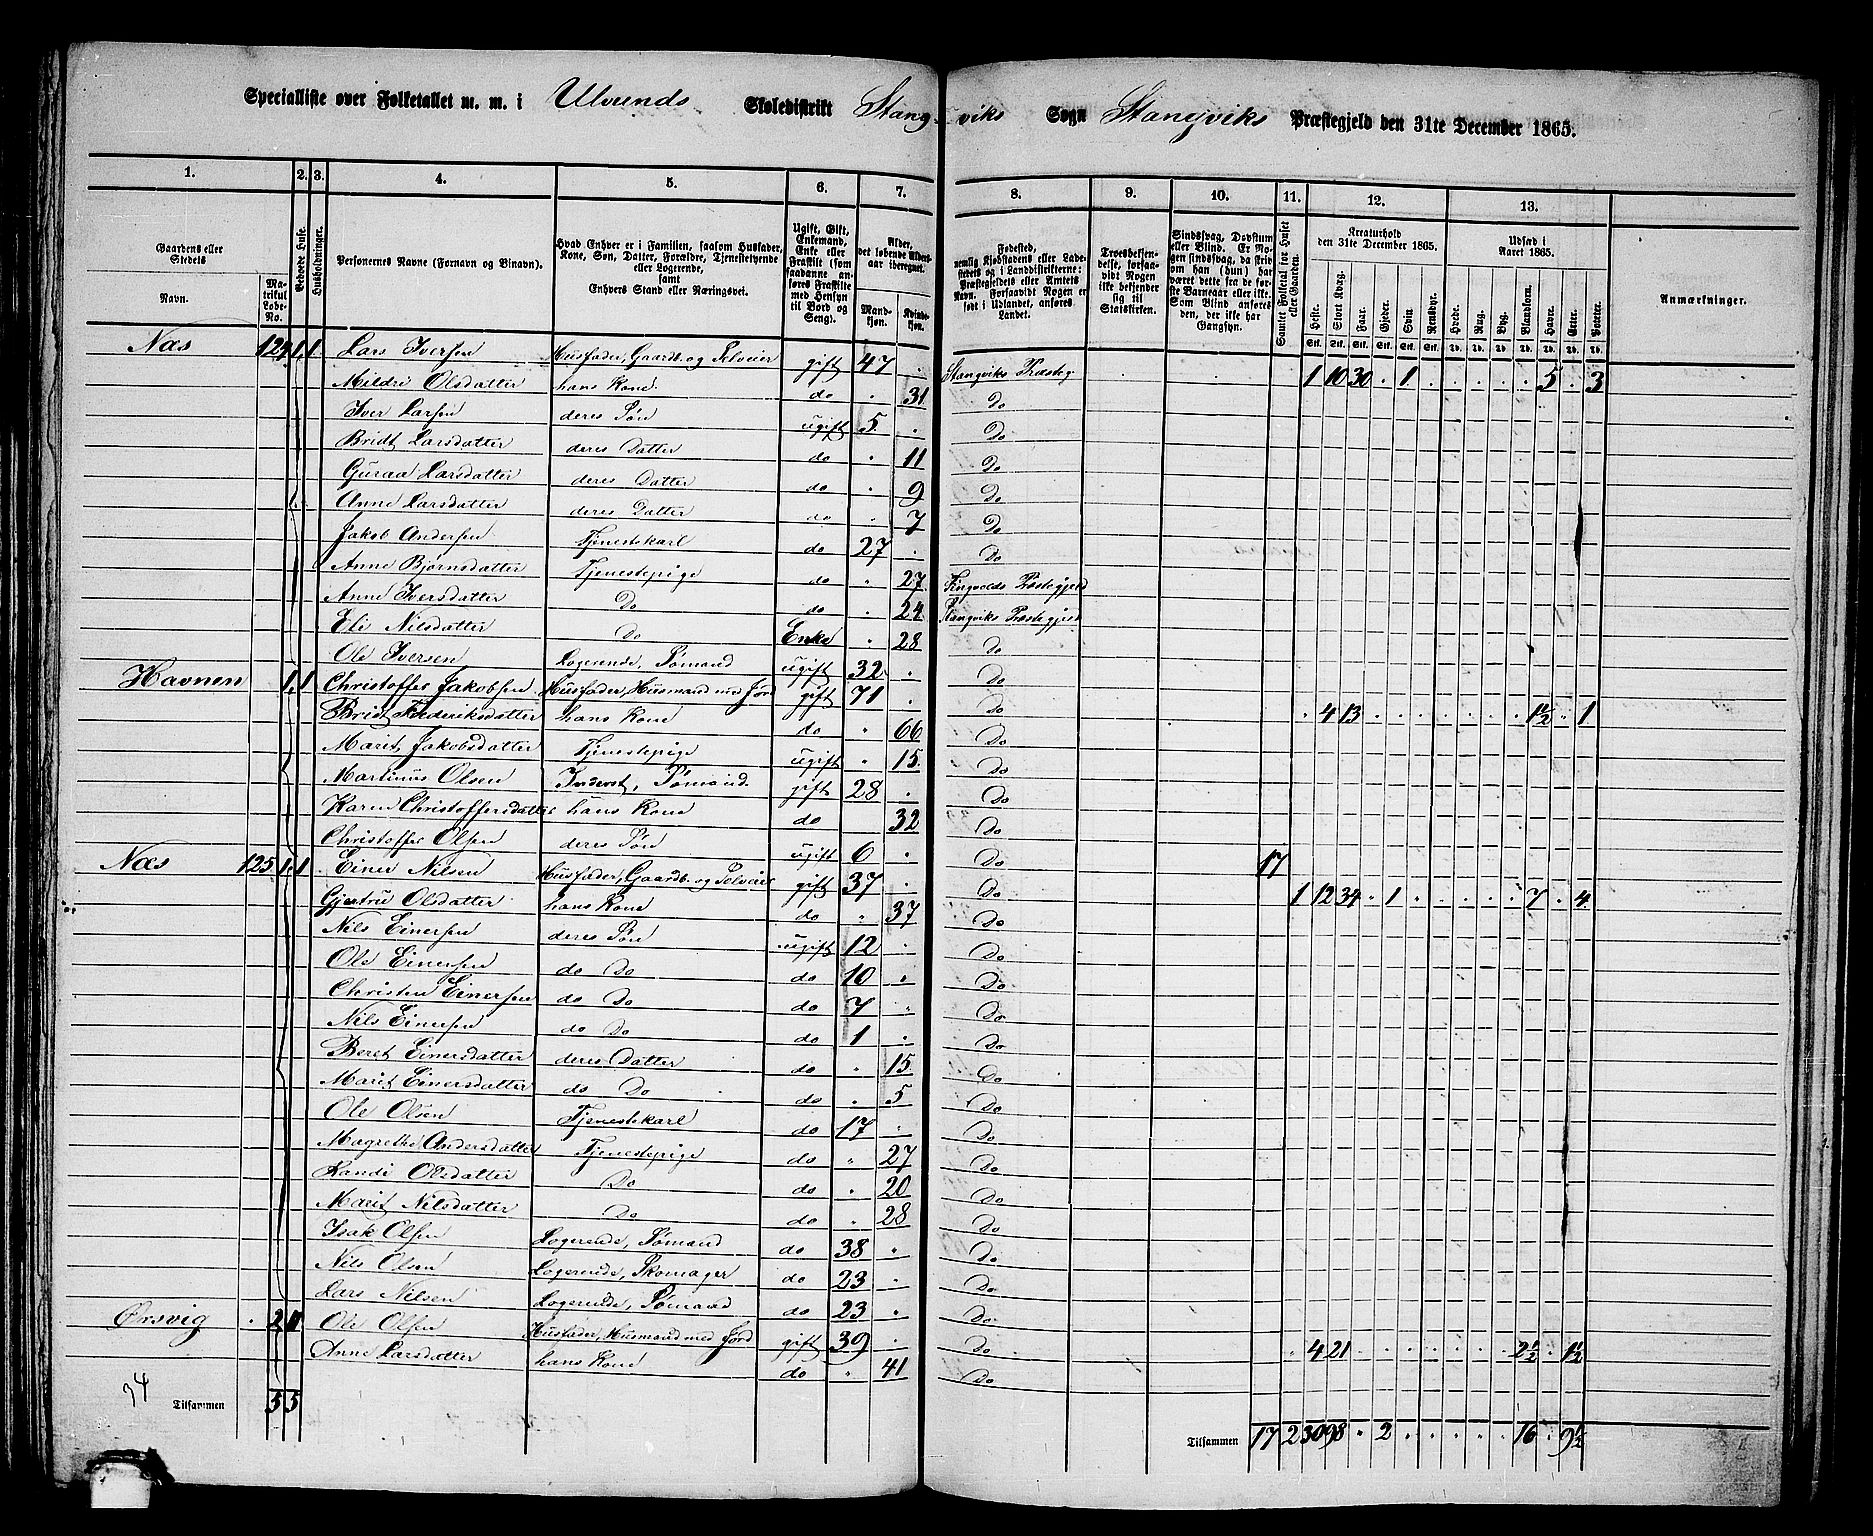 Specialliste over Folketallet m. m. i Ulvunds Skoledistrikt Stangviks Sogn Stangviks Præstegjeld den 31te December 1865.
1. 2. 3. 4. 5. 6. 7. 8. 9. 10. 11. 12. 13.
Gaardens eller Stedets Navn. Matrikul Løbe-No. Bebœde Huse. Husholdninger. Personernes Navne (Fornavn og Binavn). Hvad Enhver er i Familien, saasom Husfader, Kone, Søn, Datter, Forældre, Tjenestetyende eller Logerende, samt Enhvers Stand eller Næringsvei. Ugift, Gift, Enkemand, Enke eller Fraskilt (som saadanne anføres Fraskilte med Hensyn til Bord og Seng). Alder, det løbende Aldersaar iberegnet. Mandkjøn. Kvindekjøn.
Fødested, nemlig Kjøbstadens eller Ladestedets og i Landdistrikterne: Præstegjeldets eller Amtets Navn. Forsaavidt Nogen er født i Udlandet, anføres Landet. Troesbekjendelse, forsaavidt Nogen ikke bekjender sig til Statskirken. Sindssvag, Døvstum eller Blind. Er Nogen sindssvag, da skriv om han (hun) har været dette fra de første Barneaar eller ikke. Som Blind anføres den, der ikke har Gangsyn. Samlet Folketal for Huset eller Gaarden. Kreaturhold den 31te December 1865. Udsæd i Aaret 1865. Anmærkninger.
Heste. Stort Kvæg. Faar. Gjeder. Svin. Rensdyr. Hvede. Rug. Byg. Blandkorn. Havre. Erter. Poteter.
Næs 124 1 1 Lars Iversen Husfader, Gaardb. og Selveier gift 47 . Stangviks Præsteg 1 10 30 . 1 . . . . . 5 . 3
Mildri Olsdatter hans Kone do " 31 Do
Iver Larsen deres Søn ugift 5 . Do
Bridt Larsdatter deres Datter do " 11 Do
Guraa Larsdatter deres Datter do " 9 Do
Anne Larsdatter deres Datter do " 7 Do
Jakob Andersen Tjenestekarl do 27 . Do
Anne Bjørnsdatter Tjenestepige do " 27 Tingvolds Præstegjeld
Anne Iversdatter Do do " 24 Stangviks Præstegjeld
Eli Nilsdatter Do Enke " 28 Do
Ole Iversen Logerende, Sømand ugift 32 . Do
Havnen 1 1 Christoffer Jakobsen Husfader, Husmand med Jord gift 71 . Do " 4 13 . . . . . . 1½ " 1
Bridt Frederiksdatter hans Kone do " 66 Do
Marit Jakobsdatter Tjenestepige ugift " 15 Do
Martinus Olsen Inderst, Sømand gift 28 . Do
Karen Christoffersdatter hans Kone do 32 Do
Christoffer Olsen deres Søn ugift 6 " Do 17
Næs 125 1 1 Einer Nilsen Husfader, Gaardb. og Selveier gift 37 . Do 1 12 34 " 1 . . . . . 7 . 4
Gjertru Olsdatter hans Kone do " 37 Do
Nils Einersen deres Søn ugift 12 . Do
Ole Einersen do Do do 10 " Do
Christen Einersen do Do do 7 " Do
Nils Einersen do Do do 1 . Do
Beret Einersdatter deres Datter do " 15 Do
Marit Einersdatter do Do do " 5 Do
Ole Olsen Tjenestekarl do 17 . Do
Magrethe Andersdatter Tjenestepige do " 27 Do
Randi Olsdatter Do do " 20 Do
Marit Nilsdatter Do do " 28 Do
Isak Olsen Logerende, Sømand do 38 " Do
Nils Olsen Logerende, Skomager do 23 . Do
Lars Nilsen Logerende, Sømand do 23 " Do
Ørsvig . 2 1 Ole Olsen Husfader, Husmand med Jord gift 39 . Do " 4 21 . . . . . . 2½ . 1½
Anne Larsdatter hans Kone do " 41 Do
34 Tilsammen 5 5
Tilsammen 17 2 30 98 " 2 . . . . . 16 . 9½